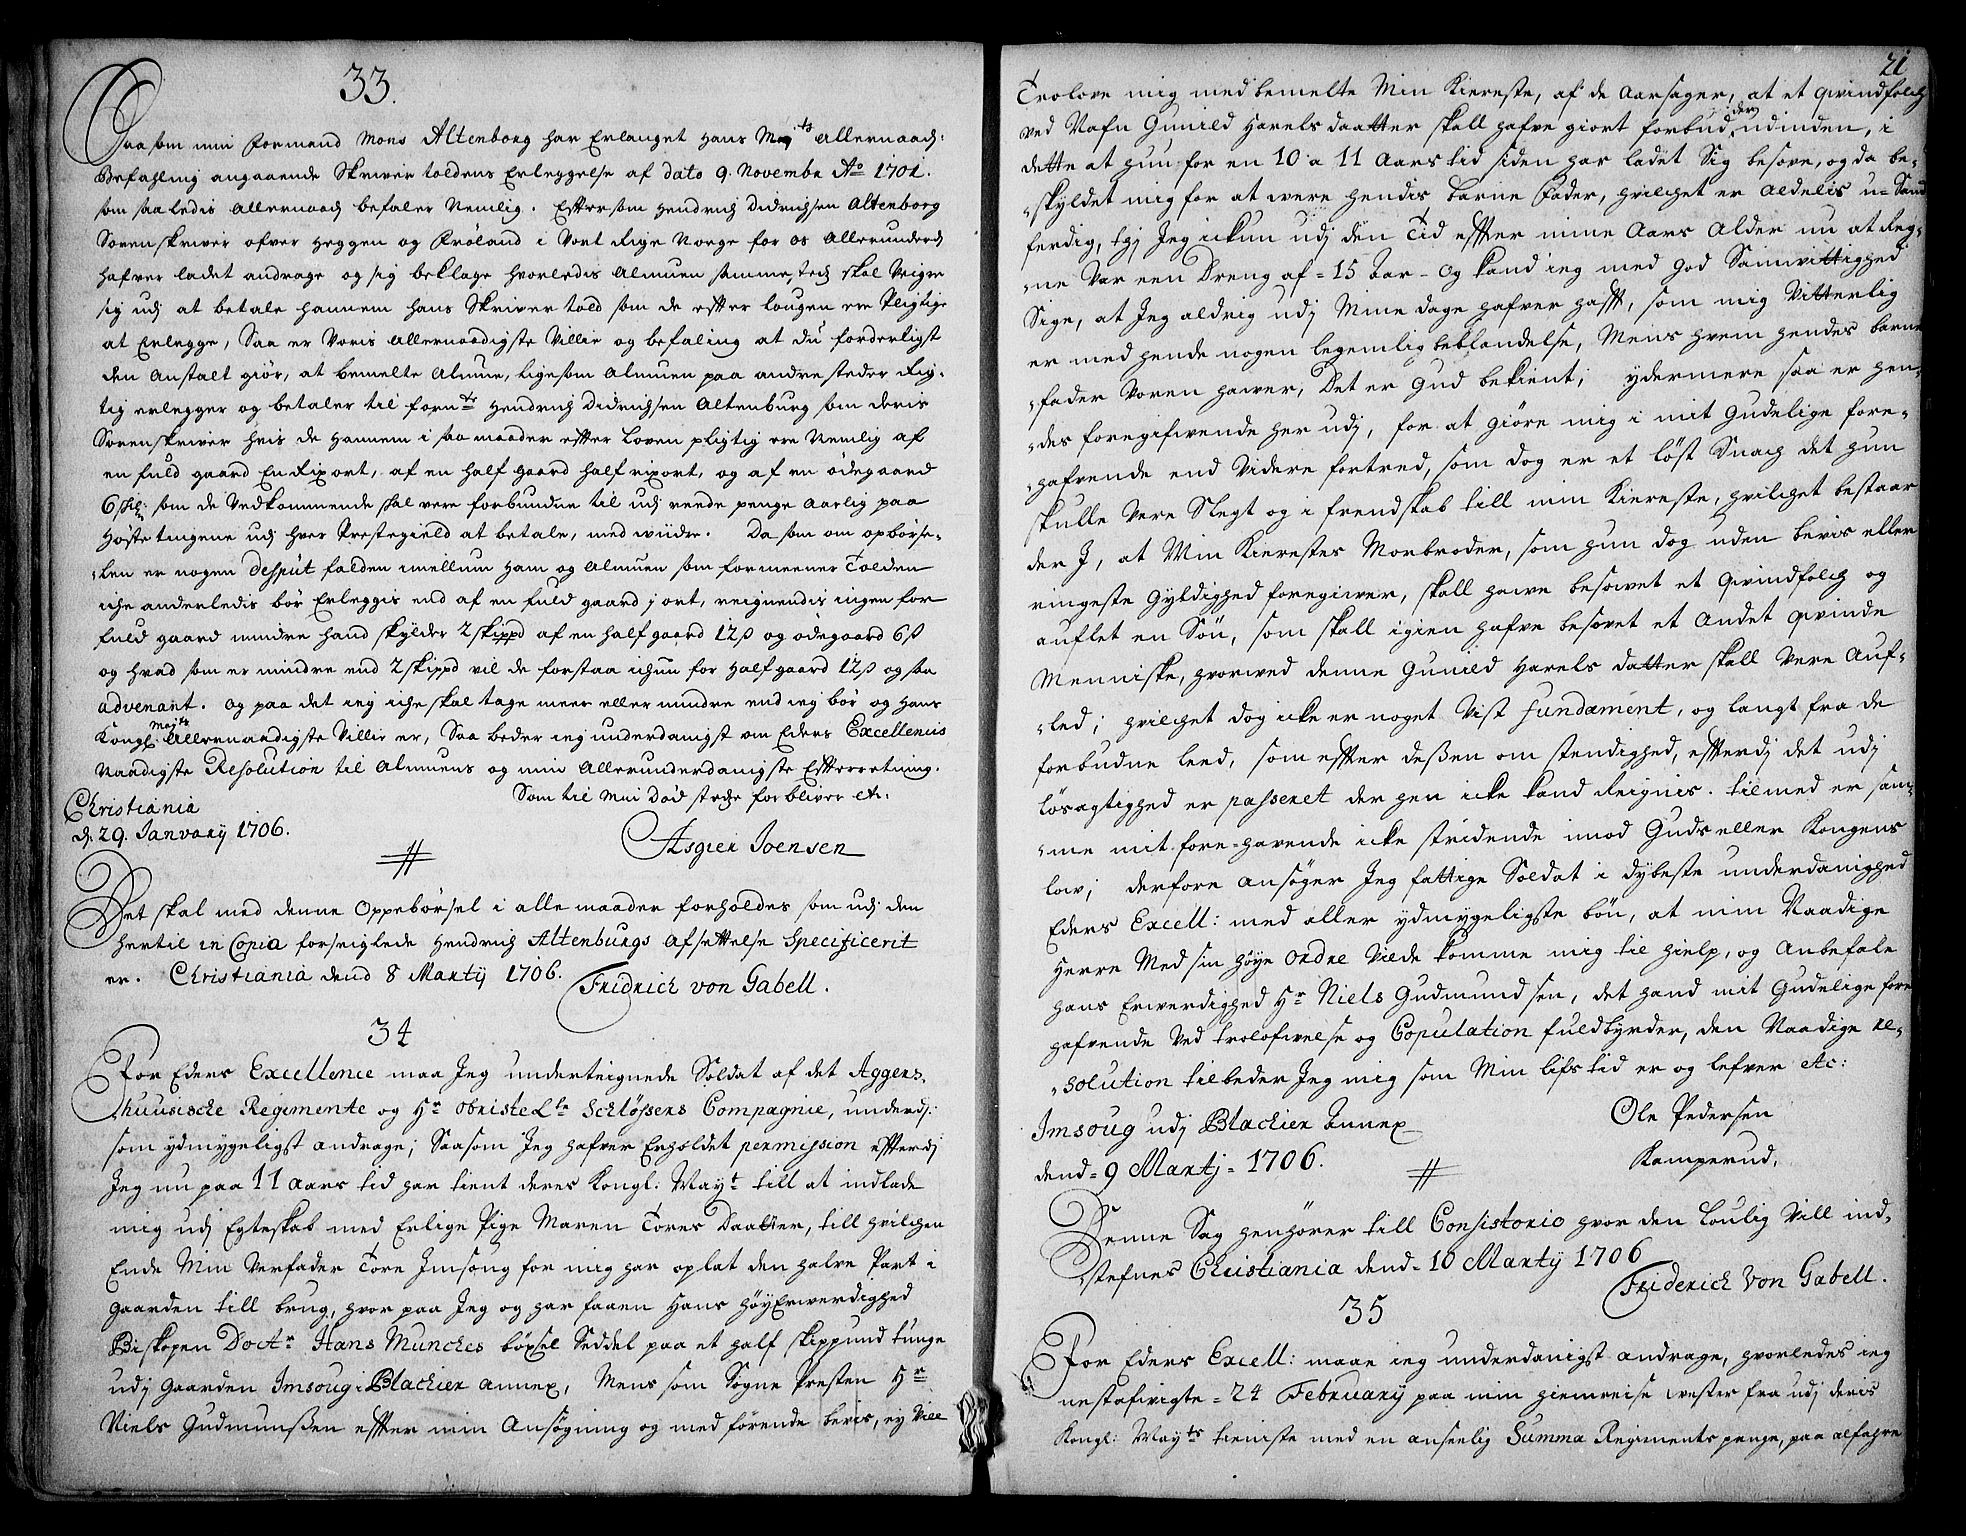 33.
Saasom min formand Mons Altenborg har Erlanget Hans May.ts allernaad:
Befahling angaaende Skriver toldens Erleggelse af dato 9. Novembr Ao 1701.
som saaledis allernaad befaler Nemlig. Effter som Hendrich Didrichsen Altenborg
Sorenskriver ofver Heggen og Fröland i Vort Rige Norge for os Allerunderd
hafver ladet andrage og sig beklage hvorledis Almuen sammested skal Veigre
sig udj at betale hannem hans Skriver told som de effter lougen ere Pligtige
at Erlegge, Saa er Voris allernaadigste Villie og befaling at du forderligst
den Anstalt giör, at bemelte Almue, ligesom Almuen paa andre steder Rig-
tig erlegger og betaler til fornte Hendrich Didrichsen Altenburg som deris
Sorenskriver hvis de Hannem i saa maader effter Loven pligtig ere Nemlig af
en fuld gaard En Rixort, af en half gaard half rixort, og af en ödegaard
6 skl: som de Vedkommende skal vere forbundne til udj reede penge Aarlig paa
Höste tingene udj hver Prestegield at betale, med widre. Da som om opbörse-
len er nogen Desput falden imellum ham og Almuen som formeener Tolden
iche anderledis bör Erleggis end af en fuld gaard j ort, reignendis ingen for
fuld gaard mindre hand skylder 2 skippd af en half gaard 12 ß og ödegaard 6 ß
og hvad som er mindre end 2 skippd vil de forstaa ichun for half gaard 12 ß og saa
advenant. og paa det ieg iche skal tage meer eller mindre end ieg bör og Hans
Kongl: Mayts Allernaadigste Villie er, Saa beder ieg underdanigst om Eders Excellences
Naadigste Resolution til Almuens og min Allerunderdanigste Effterretning.
Som til min Död stedse forbliver etc.
Christiania
d. 29. January 1706.
Asgier Joensen
Det skal med denne Oppebörsel i alle maader forholdes som udj den
hertil in Copia forseiglede Hendrich Altenburgs afsettelse Specificerit
er. Christiania dend 8 Martij 1706.
Fridrich von Gabell.
34
For Eders Excellence maa Jeg underteignede Soldat af det Aggers-
huusische Regimente og Hr Obriste Ltn Schlössers Compagnie, underd:
som ydmygeligst andrage; Saasom Jeg hafver Erholdet permission effterdj
Jeg nu paa 11 Aars tid har tient deres Kongl: Mayt till at indlade
mig udj Egteskab med Erlige Pige Maren Tores Daatter, till hvilchen
Ende Min Verfader Tore Imsoug for mig har oplat den halve Part i
Gaarden till brug, hvor paa Jeg og har faaen Hans HöyErwerdighed
Biskopen Doctr Hans Munches böxsel Seddel paa et half skippund tunge
udj Gaarden Imsoug i Blachier annex, Mens som Sogne Presten Hr
Niels Gudmunßen effter min Ansögning og medförende bevis, ey Vill
21
Trolove mig med bemelte Min Kiereste, af de Aarsager, at et Qvindfolch
ved Nafn Gunild Harels daatter skall hafve giort forbud derudinden, i
dette at hun for en 10 a 11 Aars tid siden har ladet Sig besove, og da be-
skyldet mig for at were hendis barne fader, hvilchet er aldelis u-Sand
ferdig, thj Jeg ickun udj den Tid effter mine Aars Alder nu at Reg-
ne Var een Dreng af 15 Aar - og kand ieg med god Samvittighed
Sige, at Jeg aldrig udj Mine dage hafver hafft, som mig Vitterlig
er med hende nogen legemlig beblandelse, Mens hvem hendes barne
fader Voren haver, Det er Gud bekient; ydermere saa er hen-
des foregifvende her udj, for at giöre mig i mit Gudelige fore-
hafvende end Videre fortred, som dog er et löst Snach det hun
skulle Vere Slegt og i frendskab till min Kiereste, hvilchet bestaar
der I, at Min Kierestes Morbroder, som hun dog uden bevis eller
ringeste Gyldighed foregiver, skall have besovet et Qvindfolch og
auflet en Sön, som skall igien hafve besovet et Andet qvinde
Menniske, hvorved denne Gunild Harels datter skall Vere Auf-
led; hvilchet dog icke er noget Vist fundament, og langt fra de
forbudne leed, som effter deßen omstendighed, effterdj det udj
lösagtighed er passeret der hen icke kand Reignis. tilmed er sam-
me mit fore-havende icke stridende imod Guds eller Kongens
lov; derfore ansöger Jeg fattige Soldat i dybeste underdanighed
Eders Excell: med aller ydmygeligste bön, at min Naadige
Herre Med sin höye Ordre Vilde komme mig til hielp, og Anbefale
hans Erwerdighed Hr Niels Gudmundsen, det hand mit Gudelige fore
hafvende Ved trolofvelse og Copulation fuldbyrder, den Naadige Re-
solution tilbeder Jeg mig som Min lifs tid er og lefver etc:
Imsoug udj Blachier Annex
dend 9 Martj 1706.
Ole Pedersen
Kamperud.
Denne Sag henhörer till Consistorio hvor den Loulig Vill ind-
stefnes Christiania dend 10 Martij 1706
Friderich Von Gabell.
35
For Eders Excell: maae ieg underdanigst andrage, hvorledes ieg
nestafvigte 24 February paa min hiemreise vester fra udj deris
Kongl: Mayts tieniste med en anseelig Summa Regiments penge, paa alfahre